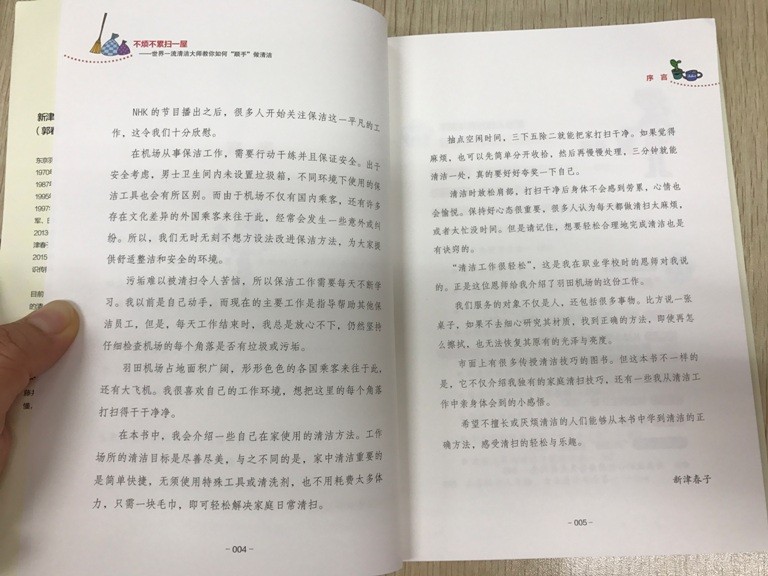 不烦不累扫一屋
——世界一流清洁大师教你如何“顺手”做清洁
NHK的节目播出之后，很多人开始关注保洁这一平凡的工
作，这令我们十分欣慰。
在机场从事保洁工作，需要行动干练并且保证安全。出于
安全考虑，男士卫生间内未设置垃圾箱，不同环境下使用的保
洁工具也会有所区别。而由于机场不仅有国内乘客，还有许多
存在文化差异的外国乘客来往于此，经常会发生一些意外或纠
纷。所以，我们无时无刻不想方设法改进保洁方法，为大家提
供舒适整洁和安全的环境。
污垢难以被清扫令人苦恼，所以保洁工作需要每天不断学
习。我以前是自己动手，而现在的主要工作是指导帮助其他保
洁员工，但是，每天工作结束时，我总是放心不下，仍然坚持
仔细检查机场的每个角落是否有垃圾或污垢。
羽田机场占地面积广阔，形形色色的各国乘客来往于此，
还有大飞机。我很喜欢自己的工作环境，想把这里的每个角落
打扫得干干净净。
在本书中，我会介绍一些自己在家使用的清洁方法。工作
场所的清洁目标是尽善尽美，与之不同的是，家中清洁重要的
是简单快捷，无须使用特殊工具或清洗剂，也不用耗费太多体
力，只需一块毛巾，即可轻松解决家庭日常清扫。
- 004 -
序 言
抽点空闲时间，三下五除二就能把家打扫干净。如果觉得
麻烦，也可以先简单分开收拾，然后再慢慢处理，三分钟就能
清洁一处，真的要好好夸奖一下自己。
清洁时放松肩部，打扫干净后身体不会感到劳累，心情也
会愉悦。保持好心态很重要，很多人认为每天都做清扫太麻烦，
或者太忙没时间。但是请记住，想要轻松合理地完成清洁也是
有诀窍的。
“清洁工作很轻松”，这是我在职业学校时的恩师对我说
的。正是这位恩师给我介绍了羽田机场的这份工作。
我们服务的对象不仅是人，还包括很多事物。比方说一张
桌子，如果不去细心研究其材质，找到正确的方法，即使再怎
么擦拭，也无法恢复其原有的光泽与亮度。
市面上有很多传授清洁技巧的图书。但这本书不一样的
是，它不仅介绍我独有的家庭清扫技巧，还有一些我从清洁工
作中亲身体会到的小感悟。
希望不擅长或厌烦清洁的人们能够从本书中学到清洁的正
确方法，感受清扫的轻松与乐趣。
新津春子
- 005 -
新津
东京
1970年
1987年
1995年
1997年
2013
津春
2015
目前